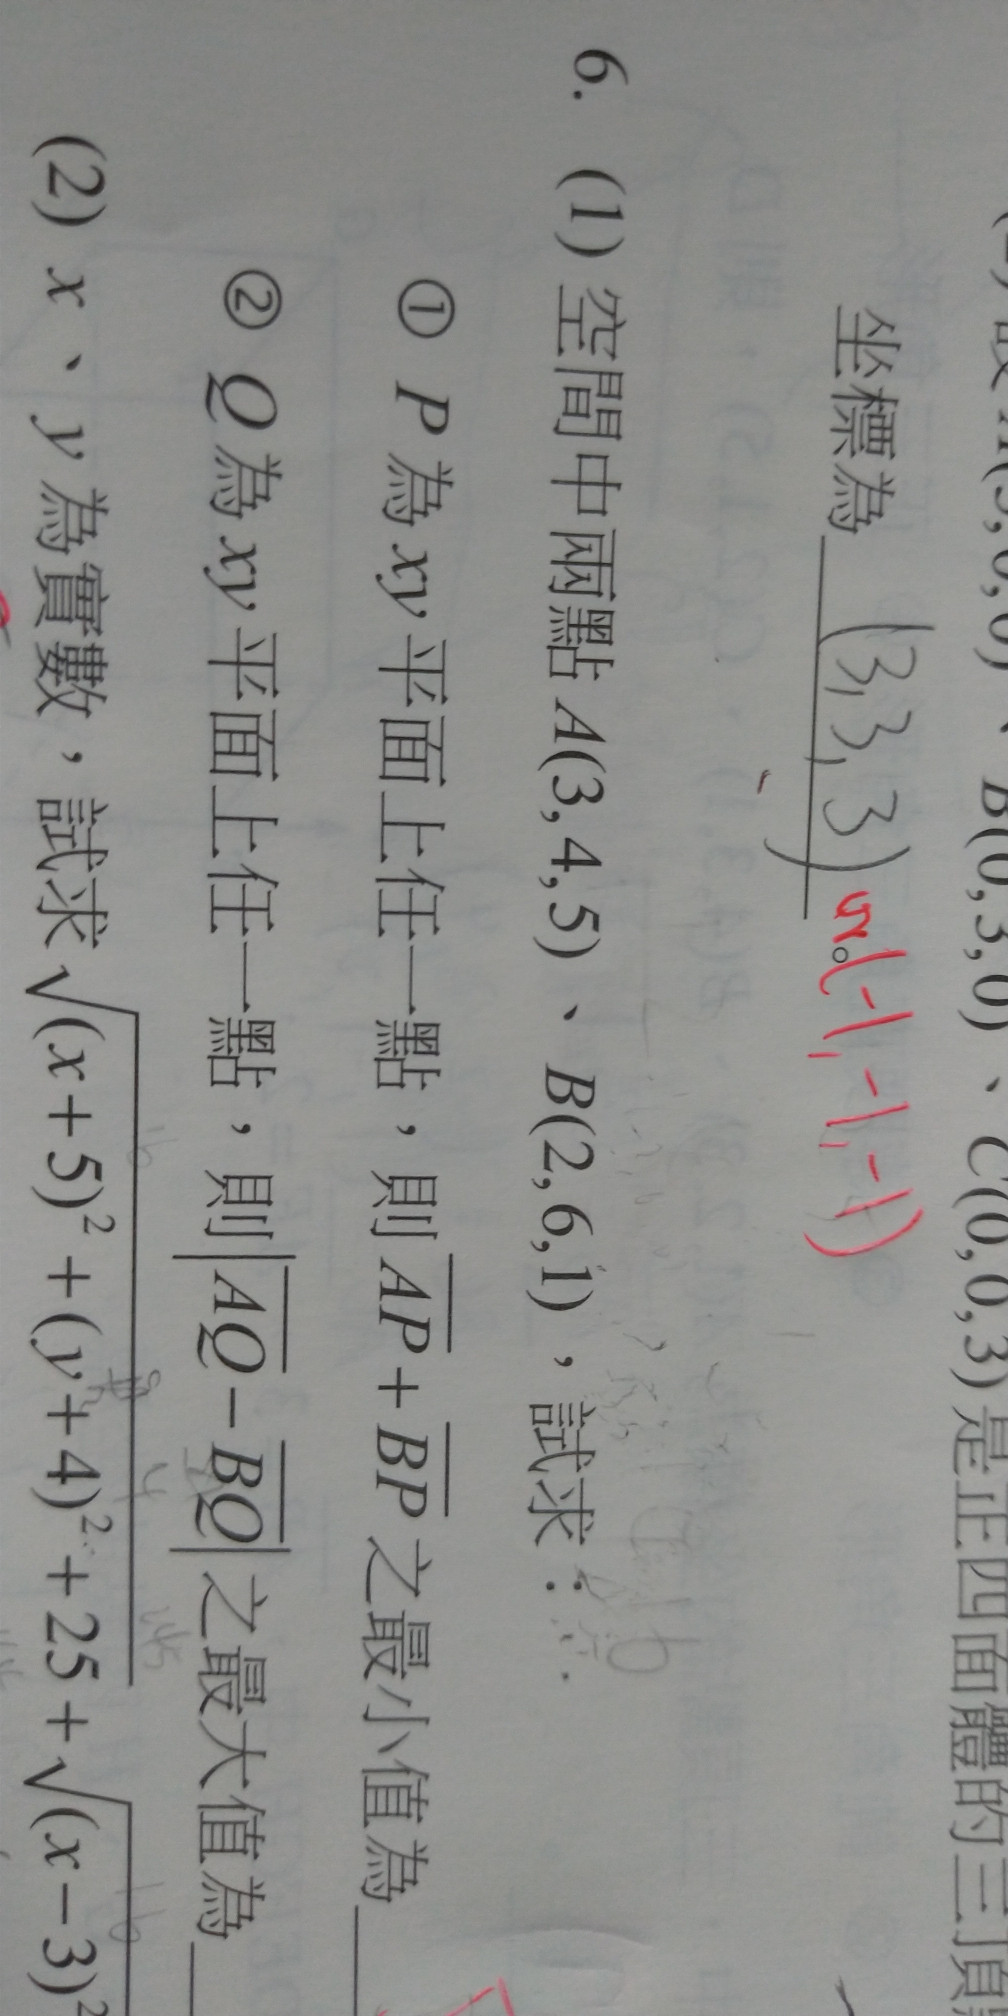 設 A(3,0,0)、B(0,3,0)、C(0,0,3)是正四面體的三頂
坐標為 (3,3,3) or (-1,-1,-1)
6. (1) 空間中兩點 A(3,4,5)、B(2,6,1),試求:
① P 為 xy 平面上任一點,則 AP + BP 之最小值為
② Q 為 xy 平面上任一點,則 |AQ − BQ| 之最大值為
(2) x、y 為實數,試求 √(x+5)² + (y+4)² + 25 + √(x−3)²